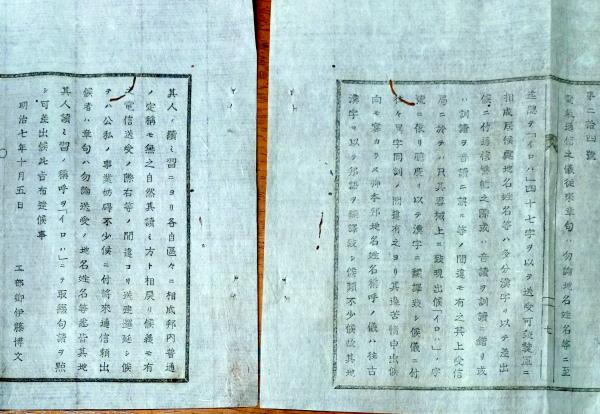 第二拾四號
電氣通信之儀從來章句ハ勿論地名姓名等ニ至
迄總テ「イロハ」四十七字ヲ以テ送受可致筈ニ
相成居候處地名姓名等ハ多分漢字ヲ以テ差出
候ニ付通信之際或ハ音讀ヲ訓讀ニ錯リ或
ハ訓讀ヲ音讀ニ誤ル等ノ間違モ有之其上受信
局ニ於テハ只其器械上ニ致現出候「イロハ」ノ字
號ニ依リ以テ漢字ニ飜譯致シ候儀ニ付
往々異字同訓ノ間違有之ヨリ其苦情申出候
向モカラス抑本邦地名姓名稱呼ノ儀ハ往古
漢字ヲ以テ邦語ヲ飜譯致シ候類不少候故其地
七
其人ノ讀ミ習ニヨリ各自區々ニ相成邦内普通
ノ定稱モ無之自然其讀ミ方ト相戻リ候義モ有
之電信送受ノ際右等ノ間違ヨリ送達遲延シ候
テハ公私ノ事業妨碍不少候ニ付將來通信賴出
候者ハ章句ハ勿論送受ノ地名姓名等悉皆其地
其人讀ミ習ノ稱呼ヲ「イロハ」ニテ取綴句讀ヲ點
シ可差出候此旨布達候事
明治七年十月五日
工部卿伊藤博文